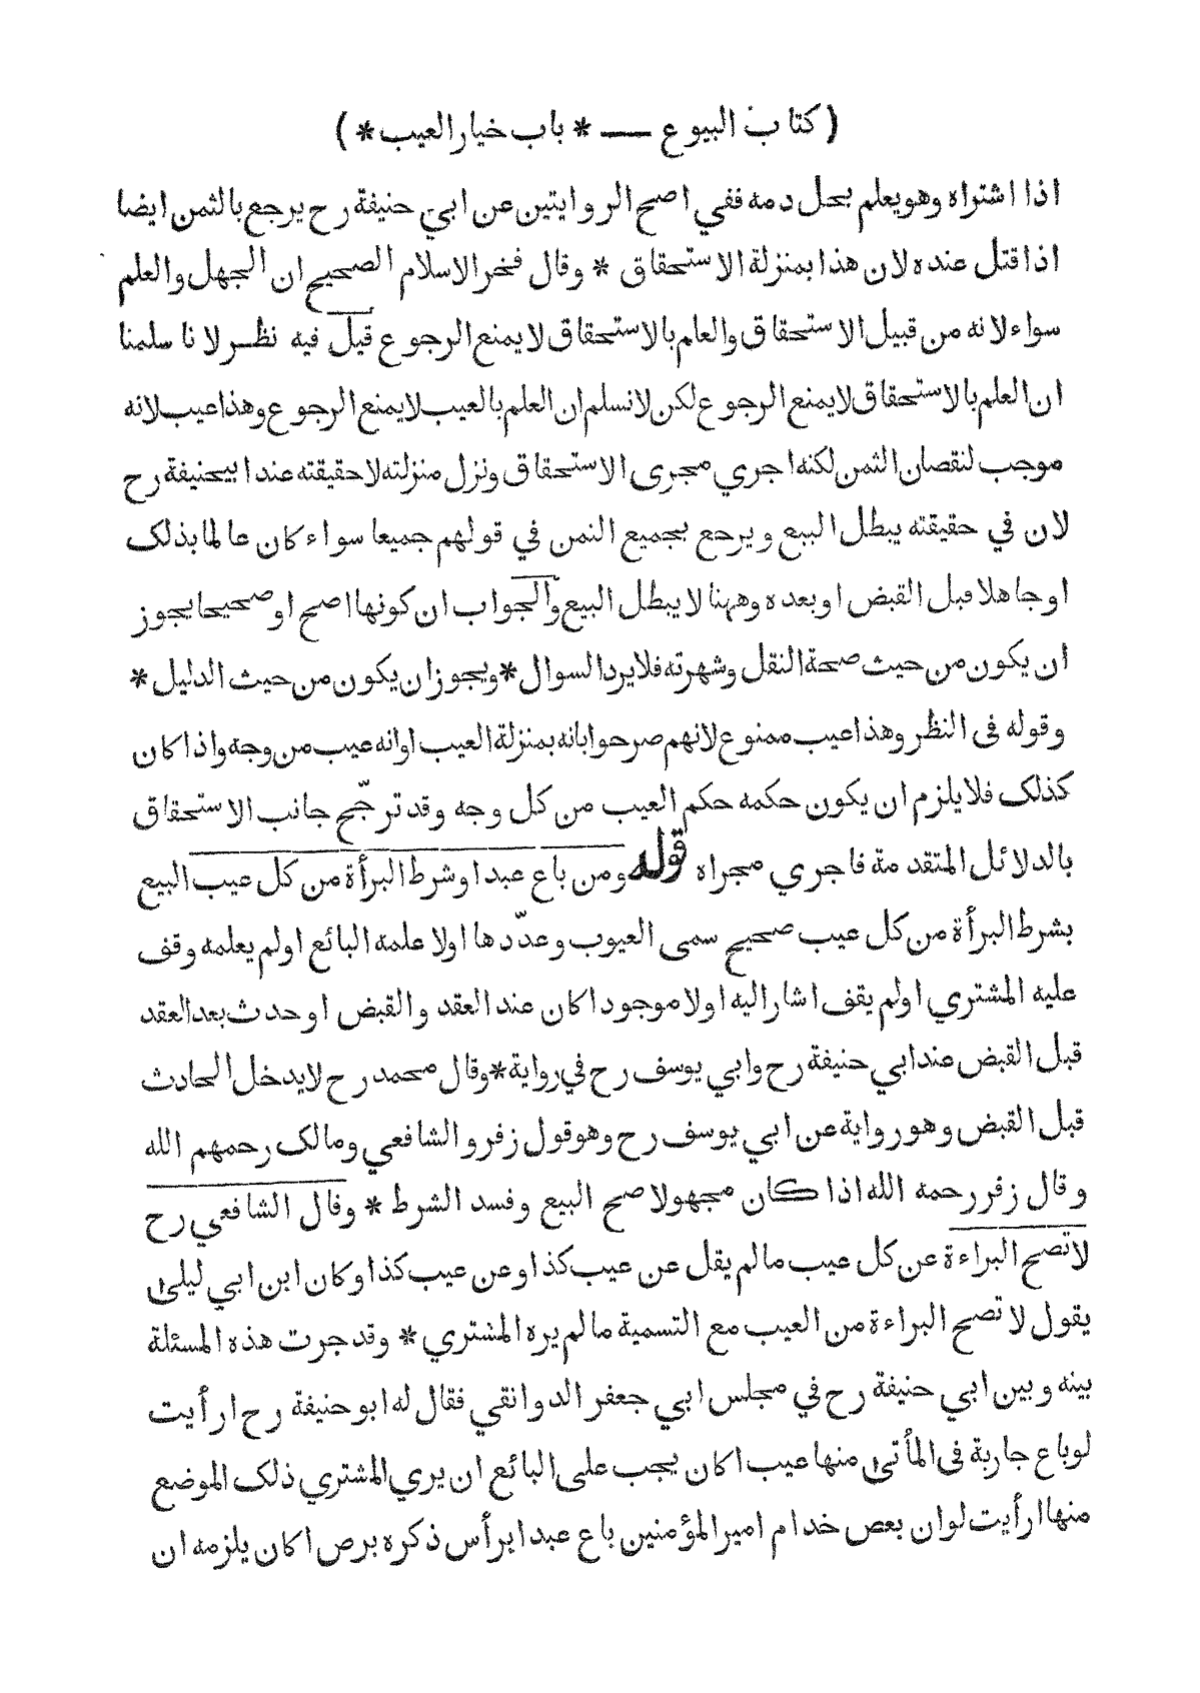 ( کتاب البیوع — * باب خیار العیب * )
اذا اشتراه وهو یعلم بحل دمه ففي اصح الروایتین عن ابي حنیفة رح یرجع بالثمن ایضا
اذا قتل عنده لان هذا بمنزلة الاستحقاق * وقال فخر الاسلام الصحیح ان الجهل والعلم
سواء لانه من قبیل الاستحقاق والعلم بالاستحقاق لا یمنع الرجوع قیل فیه نظر لانا سلمنا
ان العلم بالاستحقاق لا یمنع الرجوع لکن لا نسلم ان العلم بالعیب لا یمنع الرجوع وهذا عیب لانه
موجب لنقصان الثمن لکنه اجري مجری الاستحقاق ونزل منزلته لا حقیقته عند ابیحنیفة رح
لان في حقیقته یبطل البیع ویرجع بجمیع الثمن في قولهم جمیعا سواء کان عالما بذلک
او جاهلا قبل القبض او بعده وههنا لا یبطل البیع والجواب ان کونها اصح او صحیحا یجوز
ان یکون من حیث صحة النقل وشهرته فلا یرد السوال * ویجوز ان یکون من حیث الدلیل *
وقوله فی النظر وهذا عیب ممنوع لانهم صرحوا بانه بمنزلة العیب او انه عیب من وجه واذا کان
کذلک فلا یلزم ان یکون حکمه حکم العیب من کل وجه وقد ترجّح جانب الاستحقاق
بالدلائل المتقدمة فاجري مجراه قوله ومن باع عبدا وشرط البرأة من کل عیب البیع
بشرط البرأة من کل عیب صحیح سمی العیوب وعدّدها اولا علمه البائع او لم یعلمه وقف
علیه المشتري او لم یقف اشار الیه اولا موجودا کان عند العقد والقبض او حدث بعد العقد
قبل القبض عند ابي حنیفة رح وابي یوسف رح في روایة * وقال محمد رح لا یدخل الحادث
قبل القبض وهو روایة عن ابي یوسف رح وهو قول زفر والشافعي ومالک رحمهم الله
وقال زفر رحمه الله اذا کان مجهولا صح البیع وفسد الشرط * وقال الشافعي رح
لا تصح البراءة عن کل عیب ما لم یقل عن عیب کذا وعن عیب کذا وکان ابن ابي لیلی
یقول لا تصح البراءة من العیب مع التسمیة ما لم یره المشتري * وقد جرت هذه المسئلة
بینه وبین ابي حنیفة رح في مجلس ابي جعفر الدوانقي فقال له ابو حنیفة رح ارأیت
لو باع جاریة فی المأتی منها عیب اکان یجب علی البائع ان یري المشتري ذلک الموضع
منها ارأیت لو ان بعض خدام امیر المؤمنین باع عبدا برأس ذکره برص اکان یلزمه ان